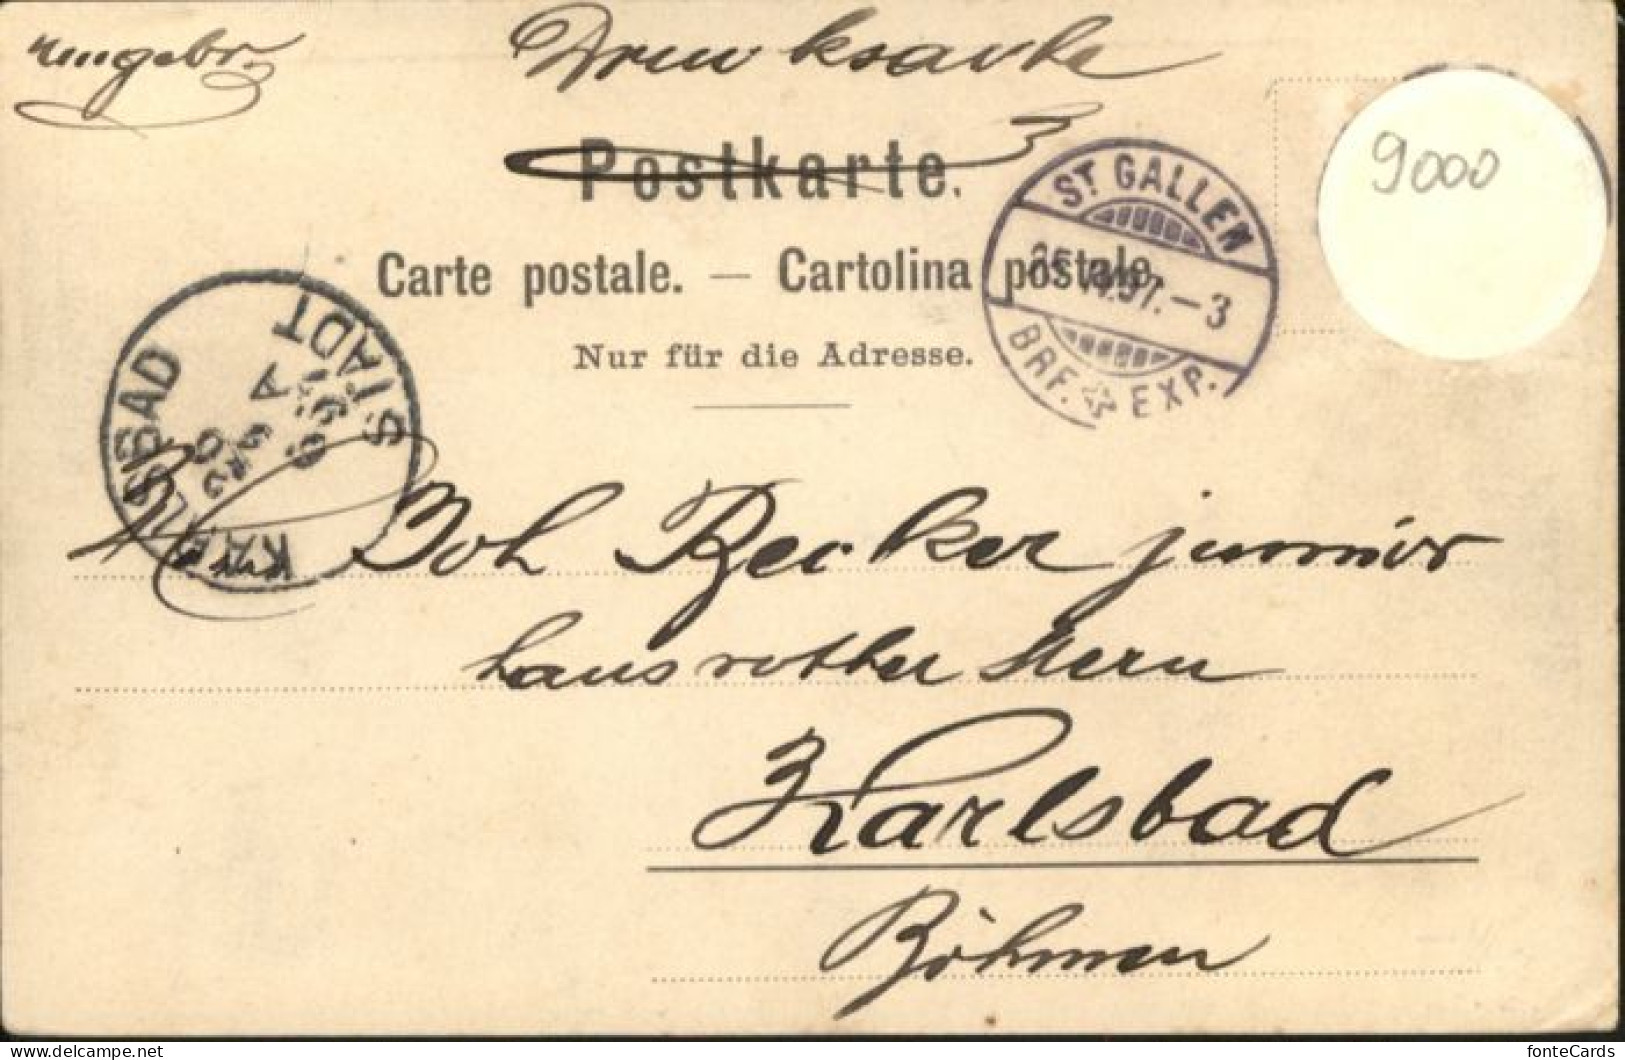 Drucksache
9000
Postkarte.
ST. GALLEN
Carte postale. — Cartolina postale.
97. – 3
BRF. EXP.
Nur für die Adresse.
KARLSBAD STADT
Joh Becker junior
haus rother Stern
Karlsbad
Böhmen
fonteCards